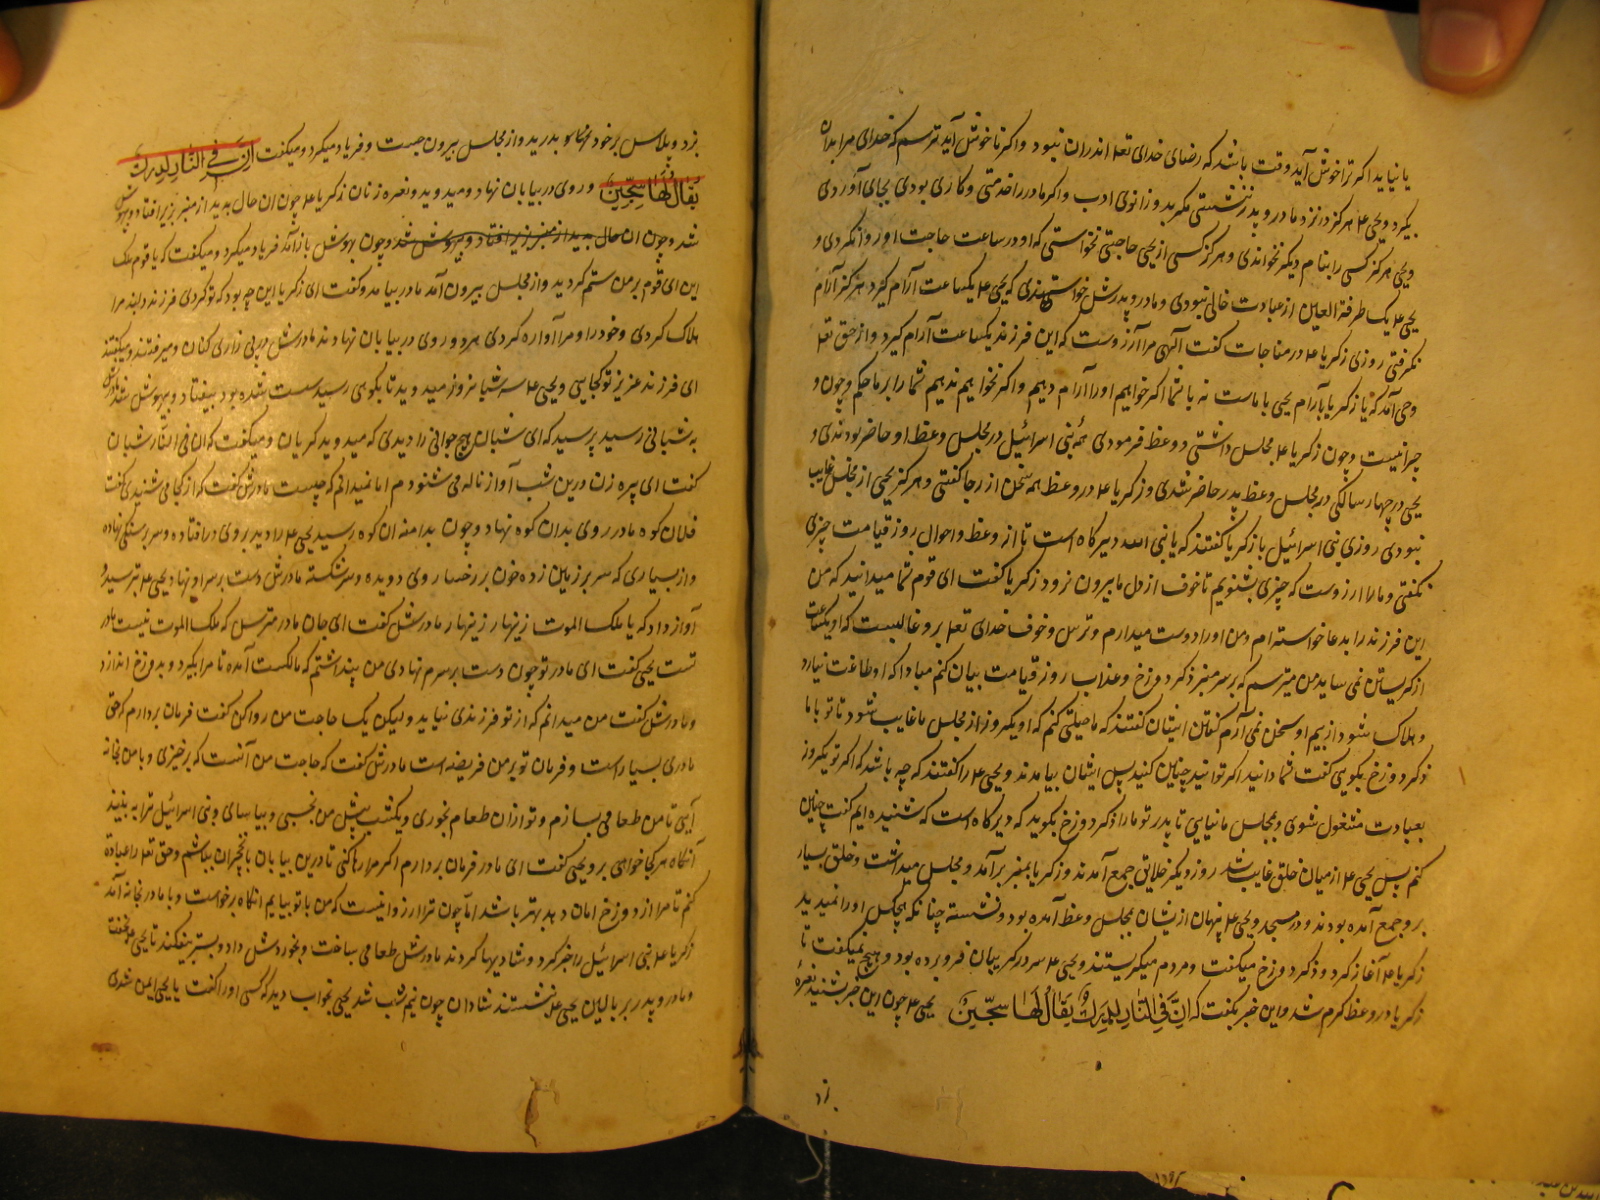 یا نیاید اکر ترا خوش آید وقت باشد که رضای خدای تعا اندران نبود و اکر نا خوش آید ترسم که خدای مرا بدان
بکیرد و یحیی ع م هرکز در نزد مادر و پدر ننشستی مکر بدو زانوی ادب و اکر مادر را خدمتی و کاری بودی بجای آوردی
و یحیی هرکز کسی را بنام دیکر نخواندی و هرکز کسی از یحیی حاجتی نخواستی که او در ساعت حاجت او روا نکردی و
یحیی ع م یک طرفة العین از عبادت خالی نبودی و مادر و پدرش خواستندی که یحیی ع م یکساعت آرام کیرد هرکز آرام
نکرفتی روزی زکریا ع م در مناجات کفت آلهی مرا آرزوست که این فرزند یکساعت آرام کیرد و از حق تعا
وحی آمد که یا زکریا بآرام یحیی با ماست نه با شما اکر خواهیم او را آرام دهیم و اکر نخواهیم ندهیم شما را بر ما حکم و چون و
چرا نیست و چون زکریا ع م مجلس داشتی و وعظ فرمودی همه بنی اسرائیل در مجلس وعظ او حاضر بودندی و
یحیی در چهار سالکی در مجلس وعظ پدر حاضر شدی و زکریا ع م در وعظ همه سخن از رجا کفتی و هرکز یحیی از مجلس غایب
نبودی روزی بنی اسرائیل با زکریا کفتند که یا نبی الله دیرکاه است تا از وعظ و احوال روز قیامت چیزی
نکفتی و ما را ارزوست که چیزی بشنویم تا خوف از دل ما بیرون نرود زکریا کفت ای قوم شما میدانید که من
این فرزند را بدعا خواسته ام و من او را دوست میدارم و ترس و خوف خدای تعا برو غالبست که او یکساعت
از کریستن نمی ساید من میترسم که بر سر منبر ذکر دوزخ و عذاب روز قیامت بیان کنم مبادا که او طاقت نیارد
و هلاک شود از بیم او سخن نمی آرم کفتن ایشان کفتند که ما حیلتی کنم که او یکروز از مجلس ما غایب شود تا تو با ما
ذکر دوزخ بکویی کفت شما دانید اکر توانید چنین کنید پس ایشان بیامدند و یحیی ع م را کفتند که چه باشد که اکر تو یکروز
بعبادت مشغول شوی و بمجلس ما نیایی تا پدر تو ما را ذکر دوزخ بکوید که دیرکاه است که نشنیده ایم کفت چنین
کنم پس یحیی ع م از میان خلق غایب شد روز دیکر خلایق جمع آمدند و زکریا بمنبر برآمد و مجلس میداشت و خلق بسیار
برو جمع آمده بودند و در مسجد و یحیی ع م پنهان از یشان بمجلس وعظ آمده بود و نشسته چنانکه هیچکس او را نمیدید
زکریا ع م آغاز کرد و ذکر دوزخ میکفت و مردم میکریستند و یحیی ع م سر در کریبان فرو برده بود و هیچ نمیکفت تا
زکریا در وعظ کرم شد و این خبر بکفت که ان فی النار لدیرک یقال لها سجین یحیی ع م چون این خبر بشنید نعره
بزد
بزد و پلاس بر خود بدرید و از مجلس بیرون جست و فریاد میکرد و میکفت ان فی النار لدیرک
یقال لها سجین و روی در بیابان نهاد و میدوید و نعره زنان زکریا ع م چون ان حال بدید از منبر بزیر افتاد و بیهوش
شد و چون ان حال بدید از منبر بزیر افتاد و بیهوش شد و چون بهوش باز آمد فریاد میکرد و میکفت که یا قوم
این ای قوم بر من ستم کردید و از مجلس بیرون آمد مادر بیامد و کفت ای زکریا این چه بود که تو کردی فرزند دلبند مرا
هلاک کردی و خود را و مرا آواره کردی هر دو روی در بیابان نهادند مادرش در پی زاری کنان و میرفتند و میکفتند
ای فرزند عزیز تو کجایی و یحیی ع م سه شبانروز میدوید تا بکوهی رسید سست شده بود بیفتاد و بیهوش شد مادرش
به شبانی رسید پرسید که ای شبان هیچ جوانی را دیدی که میدوید کریان و میکفت که ان فی النار شبان
کفت ای پیره زن درین شب آواز ناله می شنودم اما نمیدانم که چیست مادرش کفت که از کجا می شنیدی کفت
فلان کوه مادر روی بدان کوه نهاد و چون بدامنه ان کوه رسید یحیی ع م را دید بروی در افتاده و سر بر سنکی نهاده
و از بسیاری که سر بر زمین زده خون بر رخسار وی دویده و سر شکسته مادرش دست بر سر او نهاد و یحیی ع م بترسید و
آواز داد که یا ملک الموت زینهار زینهار مادرش کفت ای جان مادر مترس که ملک الموت نیست مادر
تست یحیی کفت ای مادر تو چون دست بر سرم نهادی من پنداشتم که مالکست آمده تا مرا بکیرد و بدوزخ اندازد
و مادرش کفت من میدانم که از تو فرزندی نیاید ولیکن یک حاجت من روا کن کفت فرمان بردارم که حق
مادری بسیار است و فرمان تو بر من فریضه است مادرش کفت که حاجت من آنست که برخیزی و با من بخانه
آیی تا من طعامی بسازم و تو از ان طعام بخوری و یکشب پیش من بخسبی و بیاسای و بنی اسرائیل ترا به بینند
آنکاه هر کجا خواهی برو یحیی کفت ای مادر فرمان بردارم اکر مرا رها کنی تا درین بیابان با نخجیران بباشم و حق تعا را عبادة
کنم تا مرا از دوزخ امان دهد بهتر باشد اما چون ترا ارزوانیست که من با تو بیایم انکاه برخواست و با مادر بخانه آمد
زکریا ع م بنی اسرائیل را خبر کرد و شادیها کردند مادرش طعامی ساخت و بخوردش داد و بستر بیفکند تا یحیی ع م بخفت
و مادر و پدر بر بالین یحیی ع م بنشستند شادان چون نیم شب شد یحیی بخواب دید که کسی او را کفت یا یحیی ایمن شدی